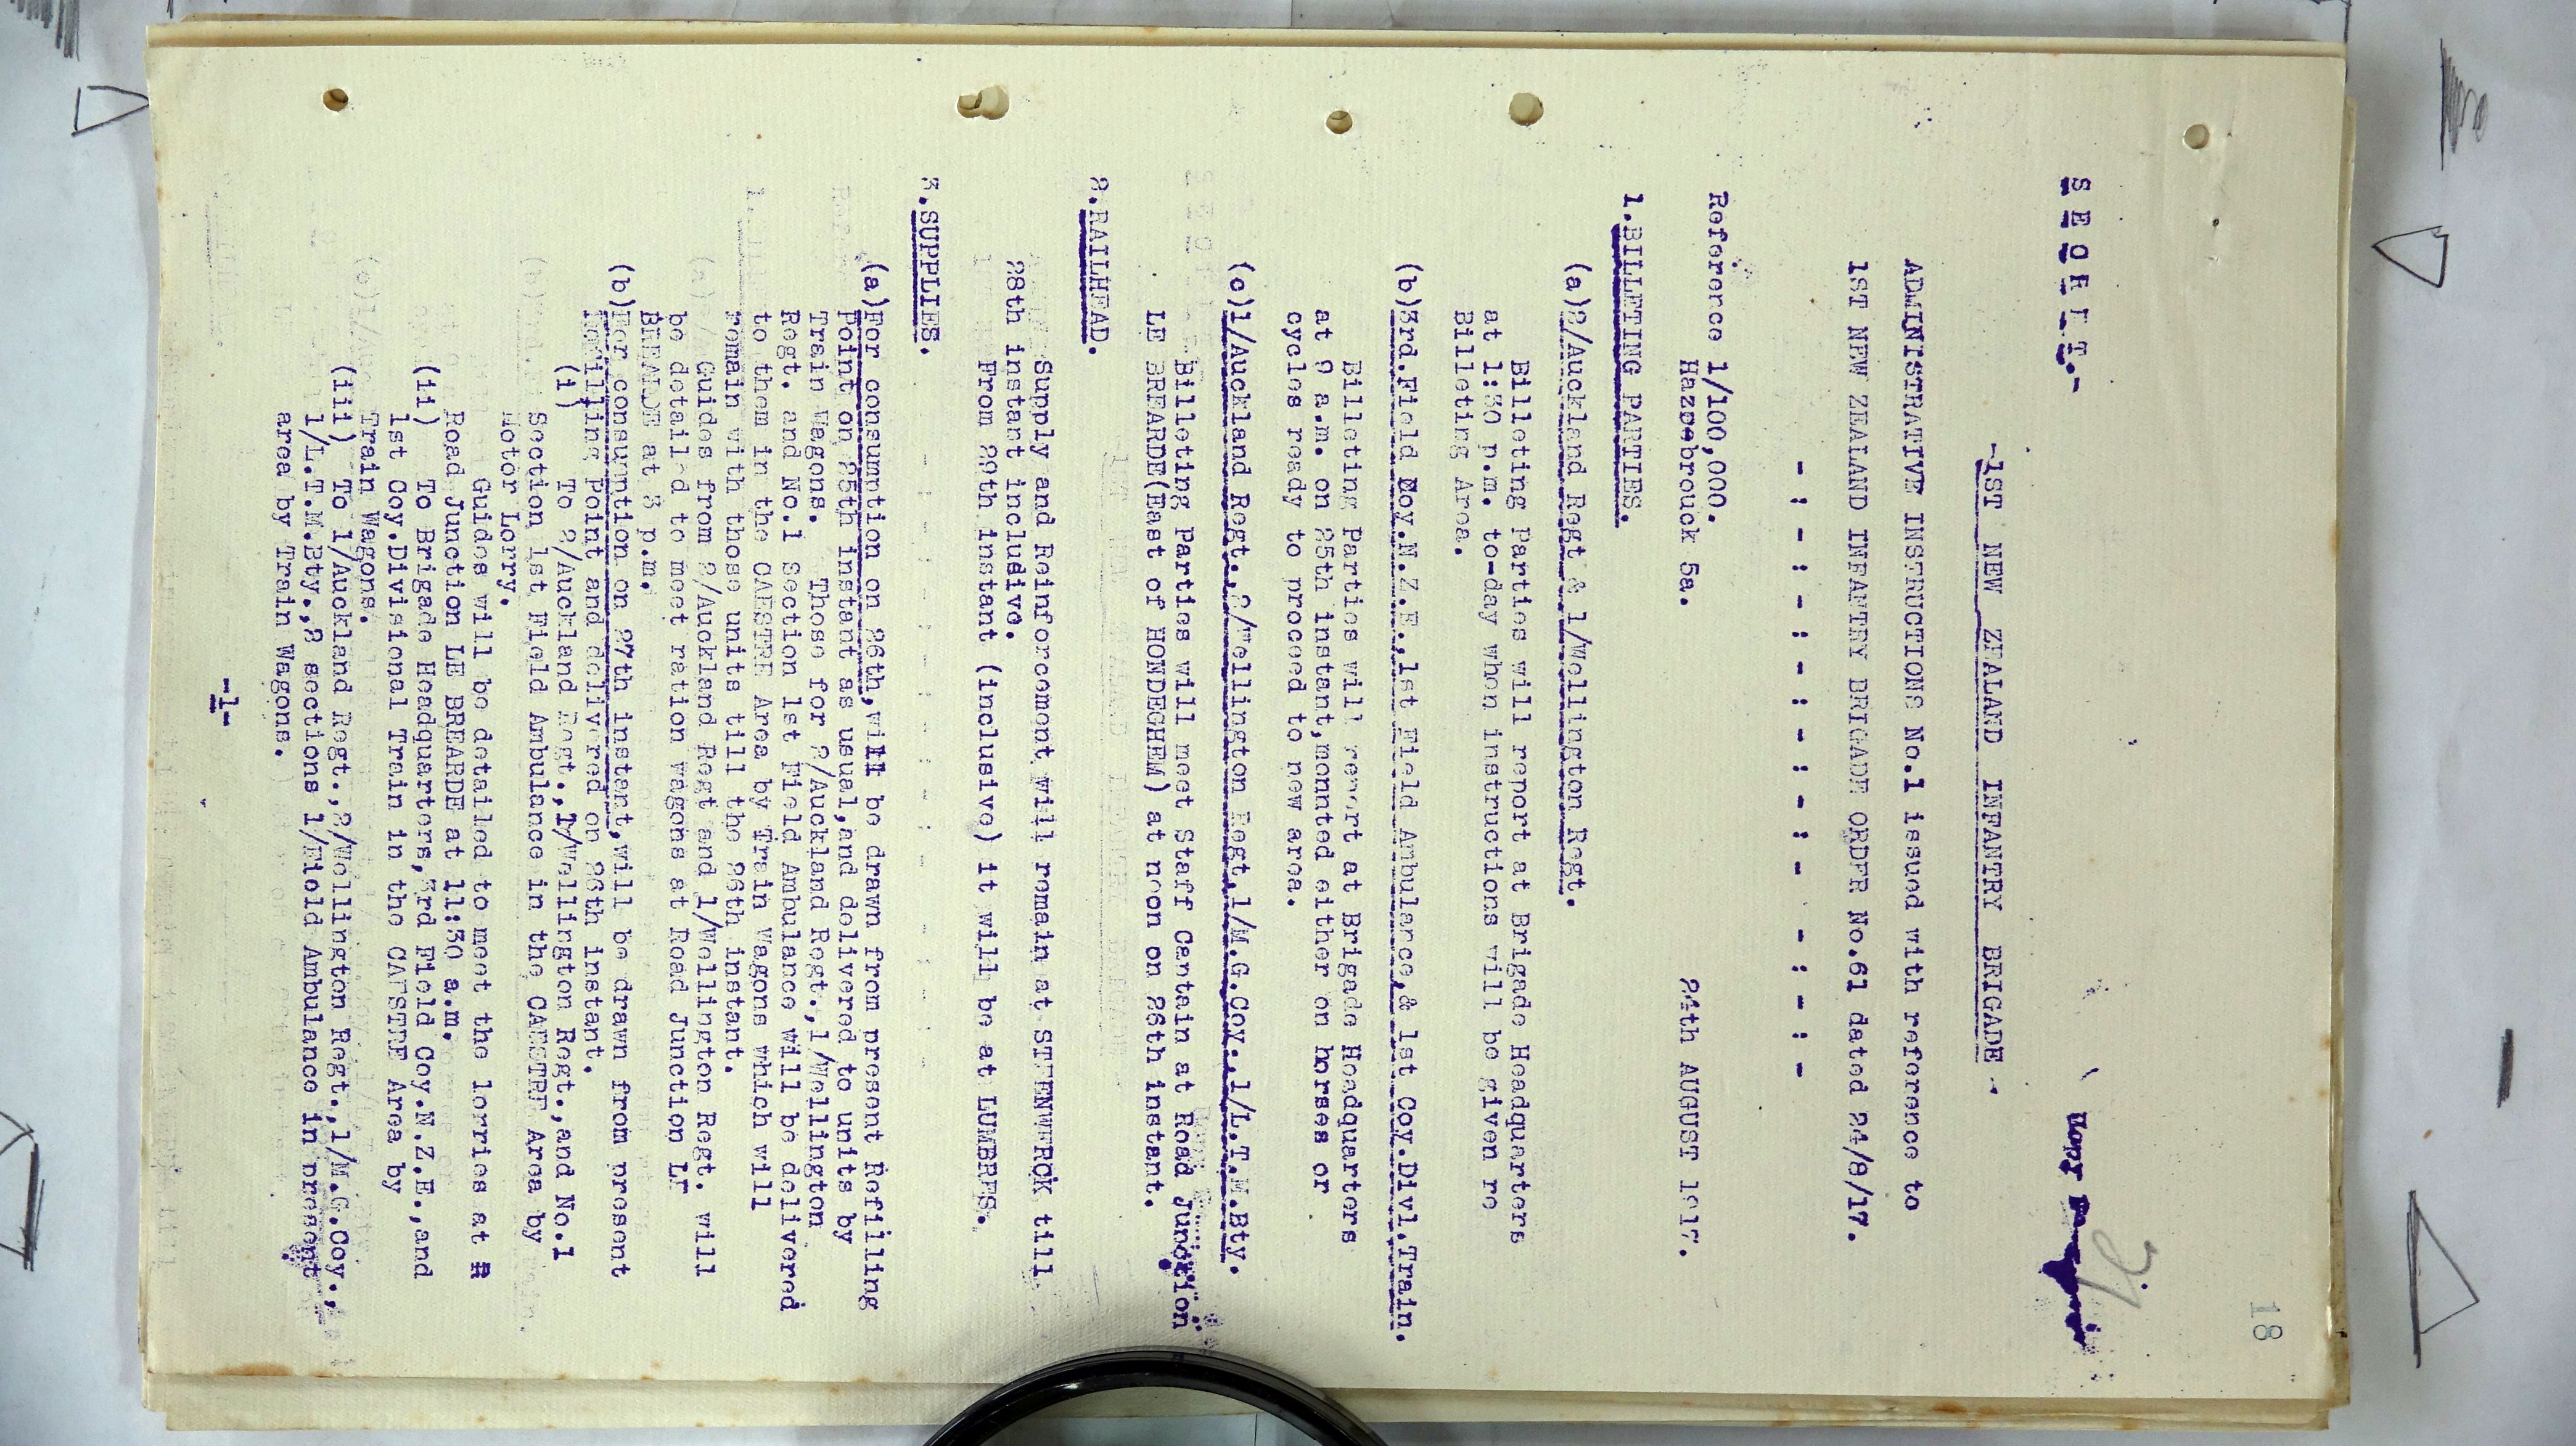 18
21
S E C R E T.-
Copy No
-1ST NEW ZEALAND INFANTRY BRIGADE-
ADMINISTRATIVE INSTRUCTIONS No.1 issued with reference to
1ST NEW ZEALAND INFANTRY BRIGADE ORDER No.61 dated 24/8/17.
- : - : - : - : - : - - : - : -
Reference 1/100,000.
Hazebrouck 5a.
24th AUGUST 1917.
1.BILLETING PARTIES.
(a)2/Auckland Regt & 1/Wellington Regt.
Billeting Parties will report at Brigade Headquarters
at 1:30 p.m. to-day when instructions will be given re
Billeting Area.
(b)3rd.Field Coy.N.Z.E.,1st Field Ambulance,& 1st Coy.Divl.Train.
Billeting Parties will report at Brigade Headquarters
at 9 a.m. on 25th instant,monnted either on horses or
cycles ready to proceed to new area.
(c)1/Auckland Regt.,2/Wellington Regt,1/M.G.Coy.,1/L.T.M.Bty.
Billeting Parties will meet Staff Captain at Road Junction
LE BREARDE(East of HONDEGHEM) at noon on 26th instant.
2.RAILHEAD.
Supply and Reinforcement will remain at STEENWERCK till
28th instant inclusive.
From 29th instant (inclusive) it will be at LUMBRES.
3.SUPPLIES.
(a)For consumption on 26th,will be drawn from present Refilling
Point on 25th instant as usual,and delivered to units by
Train Wagons. Those for 2/Auckland Regt.,1/Wellington
Regt. and No.1 Section 1st Field Ambulance will be delivered
to them in the CAESTRE Area by Train Wagons which will
remain with those units till the 26th instant.
Guides from 2/Auckland Regt and 1/Wellington Regt. will
be detailed to meet ration wagons at Road Junction LE
BREARDE at 3 p.m.
(b)For consumption on 27th instant,will be drawn from present
Refilling Point and delivered on 26th instant.
(i) To 2/Auckland Regt.,1/Wellington Regt.,and No.1
Section 1st Field Ambulance in the CAESTRE Area by
Motor Lorry.
Guides will be detailed to meet the lorries at R
Road Junction LE BREARDE at 11:30 a.m.
(ii) To Brigade Headquarters,3rd Field Coy.N.Z.E.,and
1st Coy.Divisional Train in the CAESTRE Area by
Train Wagons.
(iii) To 1/Auckland Regt.,2/Wellington Regt.,1/M.G.Coy.,
1/L.T.M.Bty.,2 sections 1/Field Ambulance in present
area by Train Wagons.
-1-